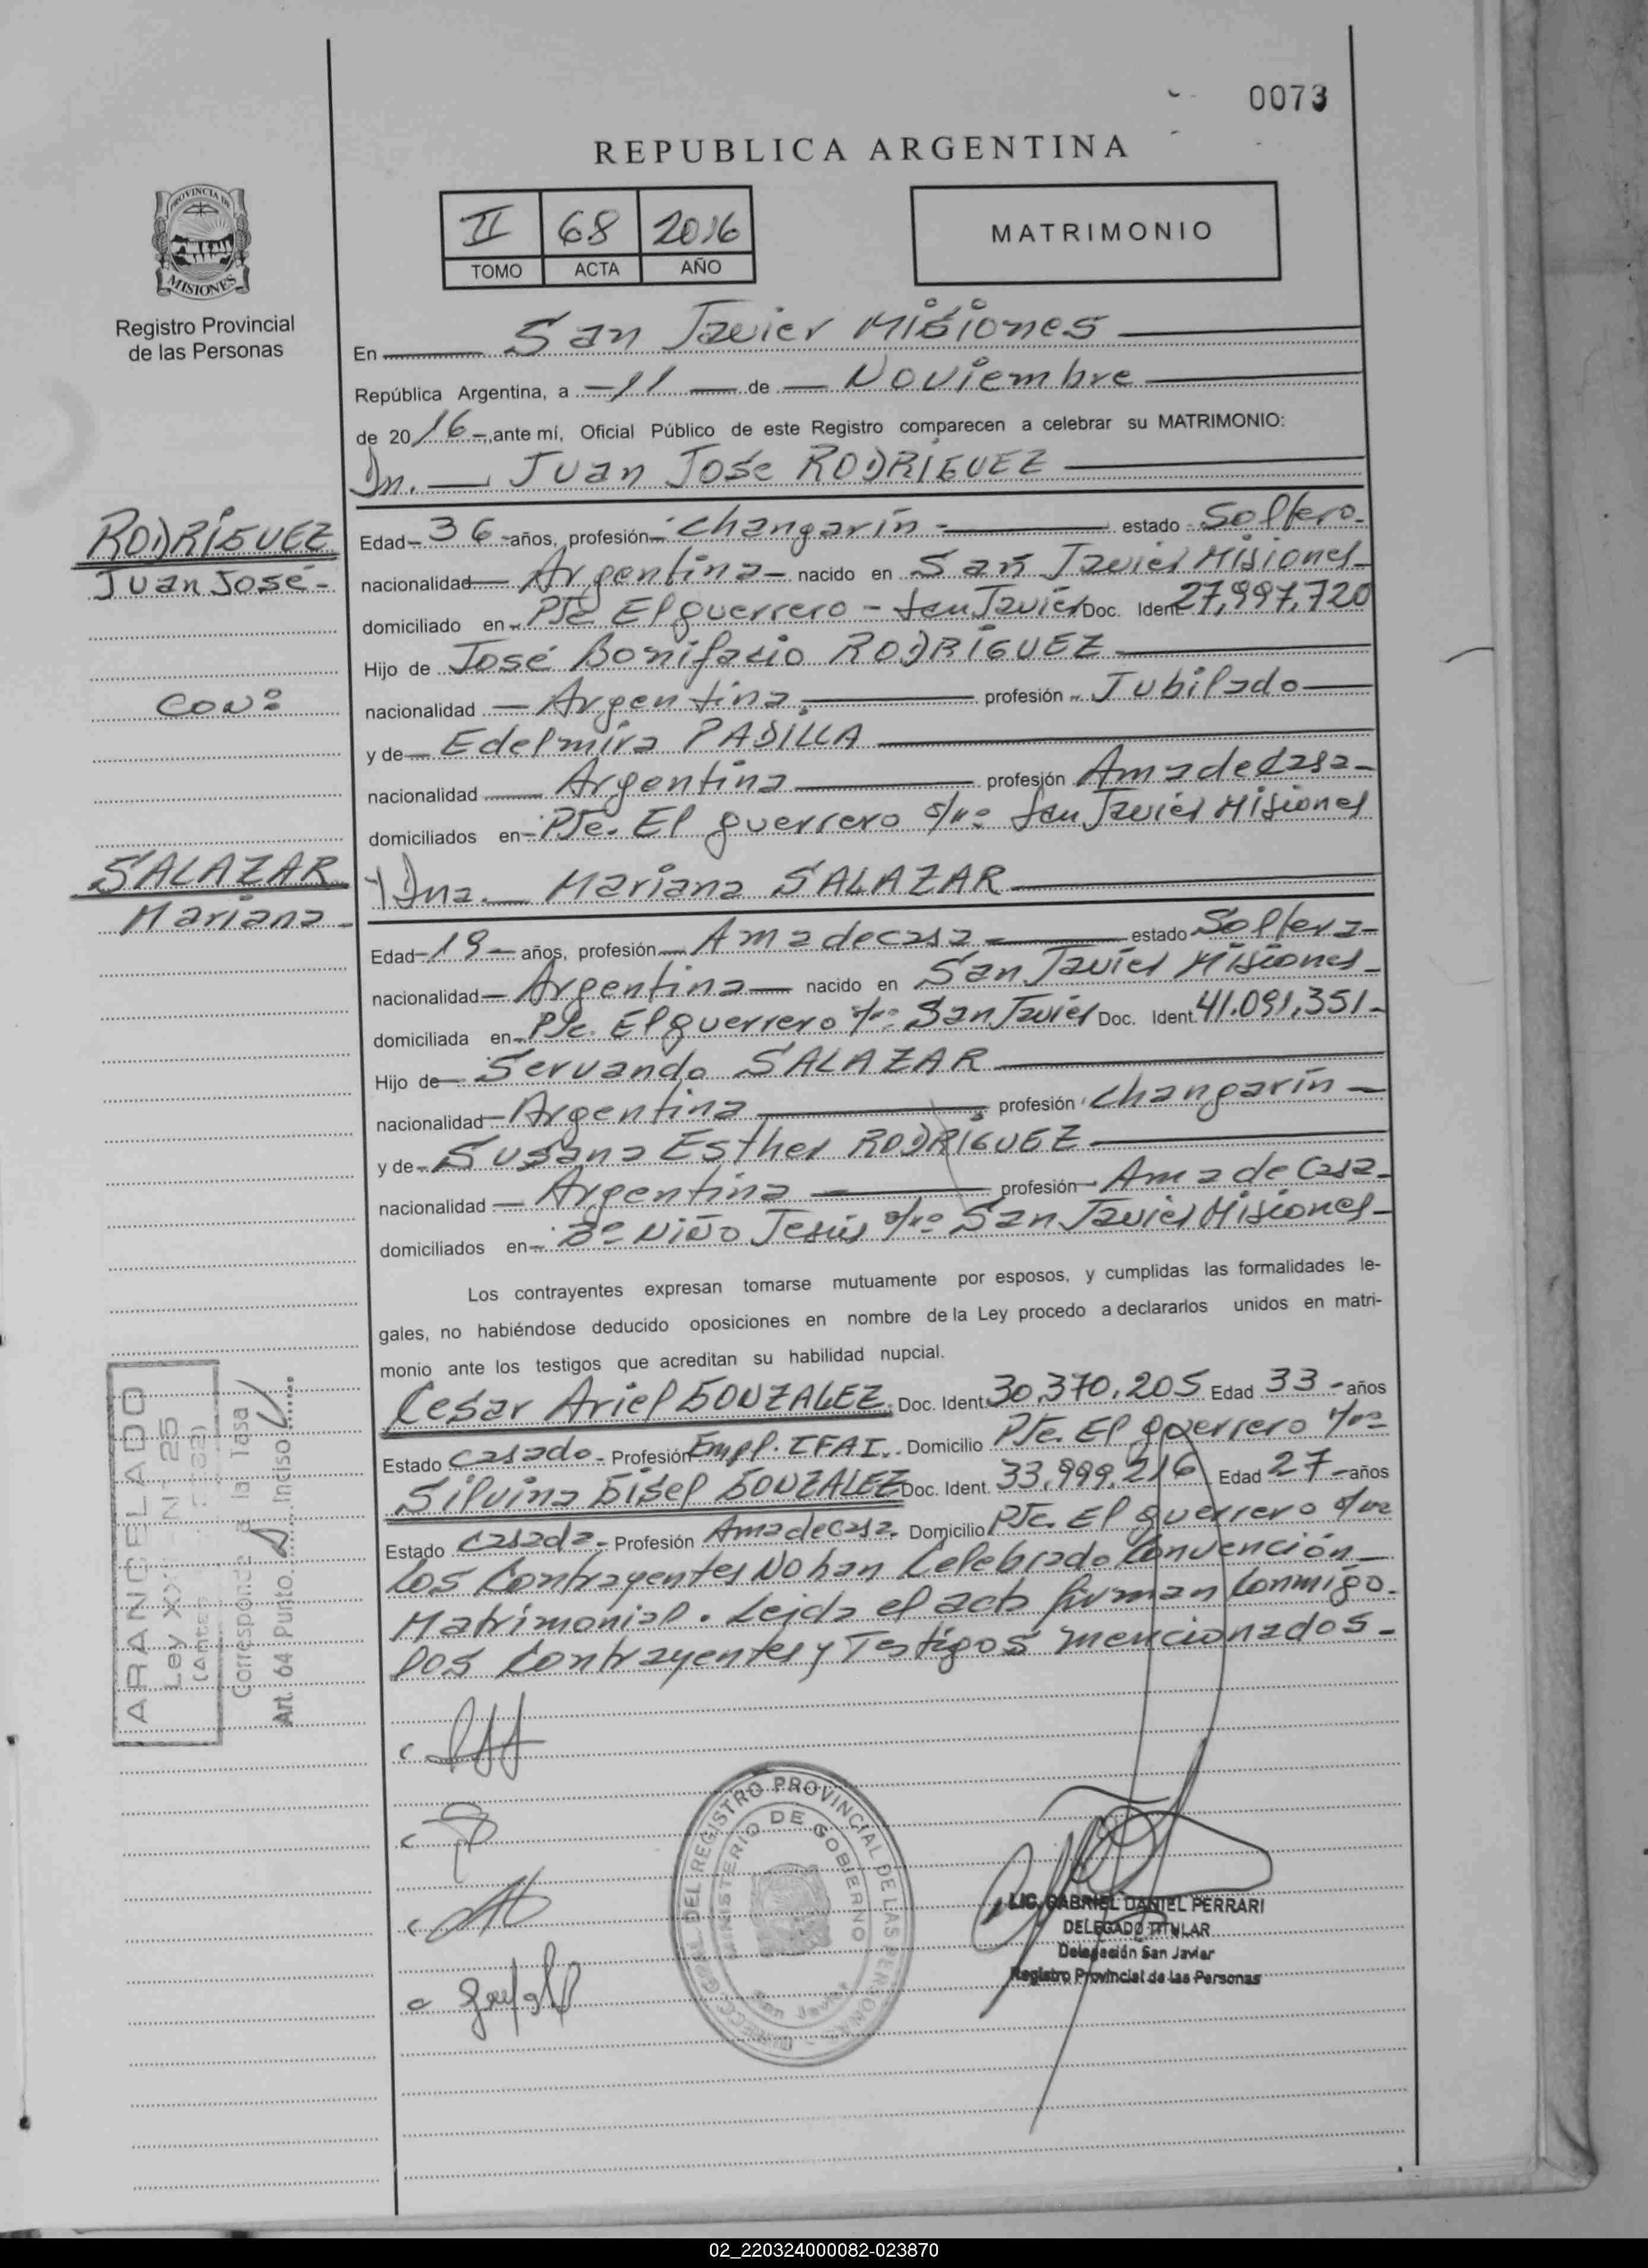 0073
REPUBLICA ARGENTINA
PROVINCIA DE
MISIONES
Registro Provincial
de las Personas
II 68 2016
TOMO ACTA AÑO
MATRIMONIO
En San Javier Misiones
República Argentina, a 11 de Noviembre
de 2016, ante mí, Oficial Público de este Registro comparecen a celebrar su MATRIMONIO:
Dn. Juan Jose RODRIGUEZ
RODRÍGUEZ
Juan José-
Edad 36 años, profesión Changarín estado Soltero
nacionalidad Argentina nacido en San Javier Misiones
domiciliado en Pje El guerrero - San Javier Doc. Ident. 27,997,720
Hijo de José Bonifacio RODRÍGUEZ
con:
nacionalidad Argentina profesión Jubilado
y de Edelmira PADILLA
nacionalidad Argentina profesión Ama de casa
domiciliados en Pje. El guerrero San Javier Misiones
SALAZAR
Mariana
y Dna. Mariana SALAZAR
Edad 19 años, profesión Ama de casa estado Soltera
nacionalidad Argentina nacido en San Javier Misiones
domiciliada en Pje. El guerrero San Javier Doc. Ident. 41.091,351
Hijo de Servando SALAZAR
nacionalidad Argentina profesión Changarín
y de Susana Esther RODRÍGUEZ
nacionalidad Argentina profesión Ama de Casa
domiciliados en Bº Niño Jesús San Javier Misiones
Los contrayentes expresan tomarse mutuamente por esposos, y cumplidas las formalidades le-
gales, no habiéndose deducido oposiciones en nombre de la Ley procedo a declararlos unidos en matri-
monio ante los testigos que acreditan su habilidad nupcial.
Cesar Ariel GONZALEZ Doc. Ident. 30,370,205 Edad 33 años
Estado Casado Profesión Empl. IFAI. Domicilio Pje. El guerrero
Silvina Gisel GONZALEZ Doc. Ident. 33,999,216 Edad 27 años
Estado Casada Profesión Ama de casa Domicilio Pje. El guerrero
Los Contrayentes No han Celebrado Convención
Matrimonial. Leida el acta firman Conmigo
los Contrayentes y Testigos mencionados-
ARANCELADO
Ley XXII-Nº 25
Corresponde a la Tasa
Art. 64 Punto Inciso
REGISTRO PROVINCIAL DE LAS PERSONAS
MINISTERIO DE GOBIERNO
San Javier
LIC. GABRIEL DANIEL PERRARI
DELEGADO TITULAR
Delegación San Javier
Registro Provincial de las Personas
02_220324000082-023870